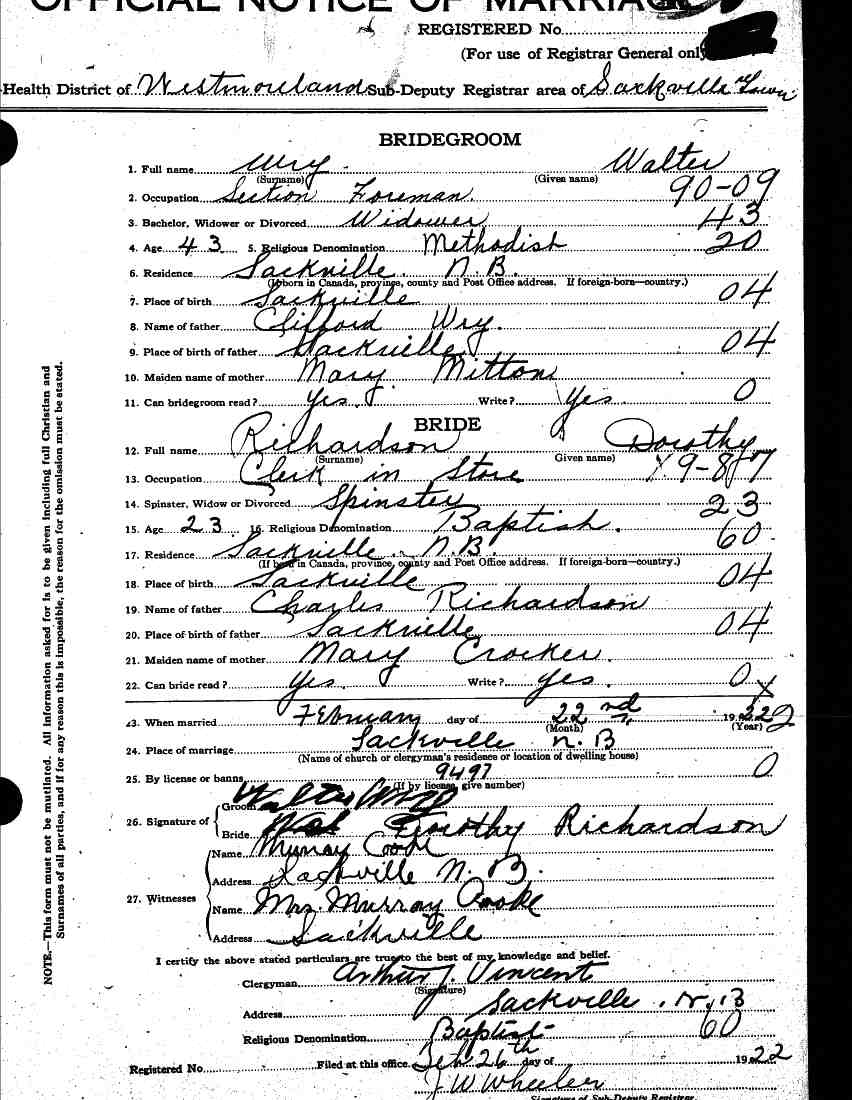 OFFICIAL NOTICE OF MARRIAGE
REGISTERED No.
(For use of Registrar General only
Health District of Westmorland Sub-Deputy Registrar area of Sackville Town
BRIDEGROOM
1. Full name Wry Walter
(Surname) (Given name)
2. Occupation Section Foreman 90-09
3. Bachelor, Widower or Divorced Widower 43
4. Age 43 5. Religious Denomination Methodist 20
6. Residence Sackville N.B.
(If born in Canada, province, county and Post Office address. If foreign-born—country.)
7. Place of birth Sackville 04
8. Name of father Clifford Wry
9. Place of birth of father Sackville 04
10. Maiden name of mother Mary Mitton
11. Can bridegroom read? Yes Write? Yes 0
BRIDE
12. Full name Richardson Dorothy
(Surname) Given name)
13. Occupation Clerk in Store
14. Spinster, Widow or Divorced Spinster 23
15. Age 23 16. Religious Denomination Baptist. 60
17. Residence Sackville N.B.
(If born in Canada, province, county and Post Office address. If foreign-born—country.)
18. Place of birth Sackville 04
19. Name of father Charles Richardson
20. Place of birth of father Sackville 04
21. Maiden name of mother Mary Crocker
22. Can bride read? Yes. Write? yes. 0 x
23. When married February day of 22nd
(Month) (Year)
24. Place of marriage Sackville N.B
(Name of church or clergyman's residence or location of dwelling house)
25. By license or banns 9497 0
(If by license, give number)
26. Signature of
Groom Walter Wry
Bride Dorothy Richardson
27. Witnesses
Name Murray Cook
Address Sackville N.B.
Name Mrs. Murray Cooke
Address Sackville
I certify the above stated particulars are true to the best of my knowledge and belief.
Clergyman Arthur J. Vincent
(Signature)
Address Sackville. N.B
Religious Denomination Baptist 60
Registered No. Filed at this office Feb 26th day of 1922
J W Wheeler
Signature of Sub-Deputy Registrar.
NOTE.—This form must not be mutilated. All information asked for is to be given including full Christian and
Surnames of all parties, and if for any reason this is impossible, the reason for the omission must be stated.